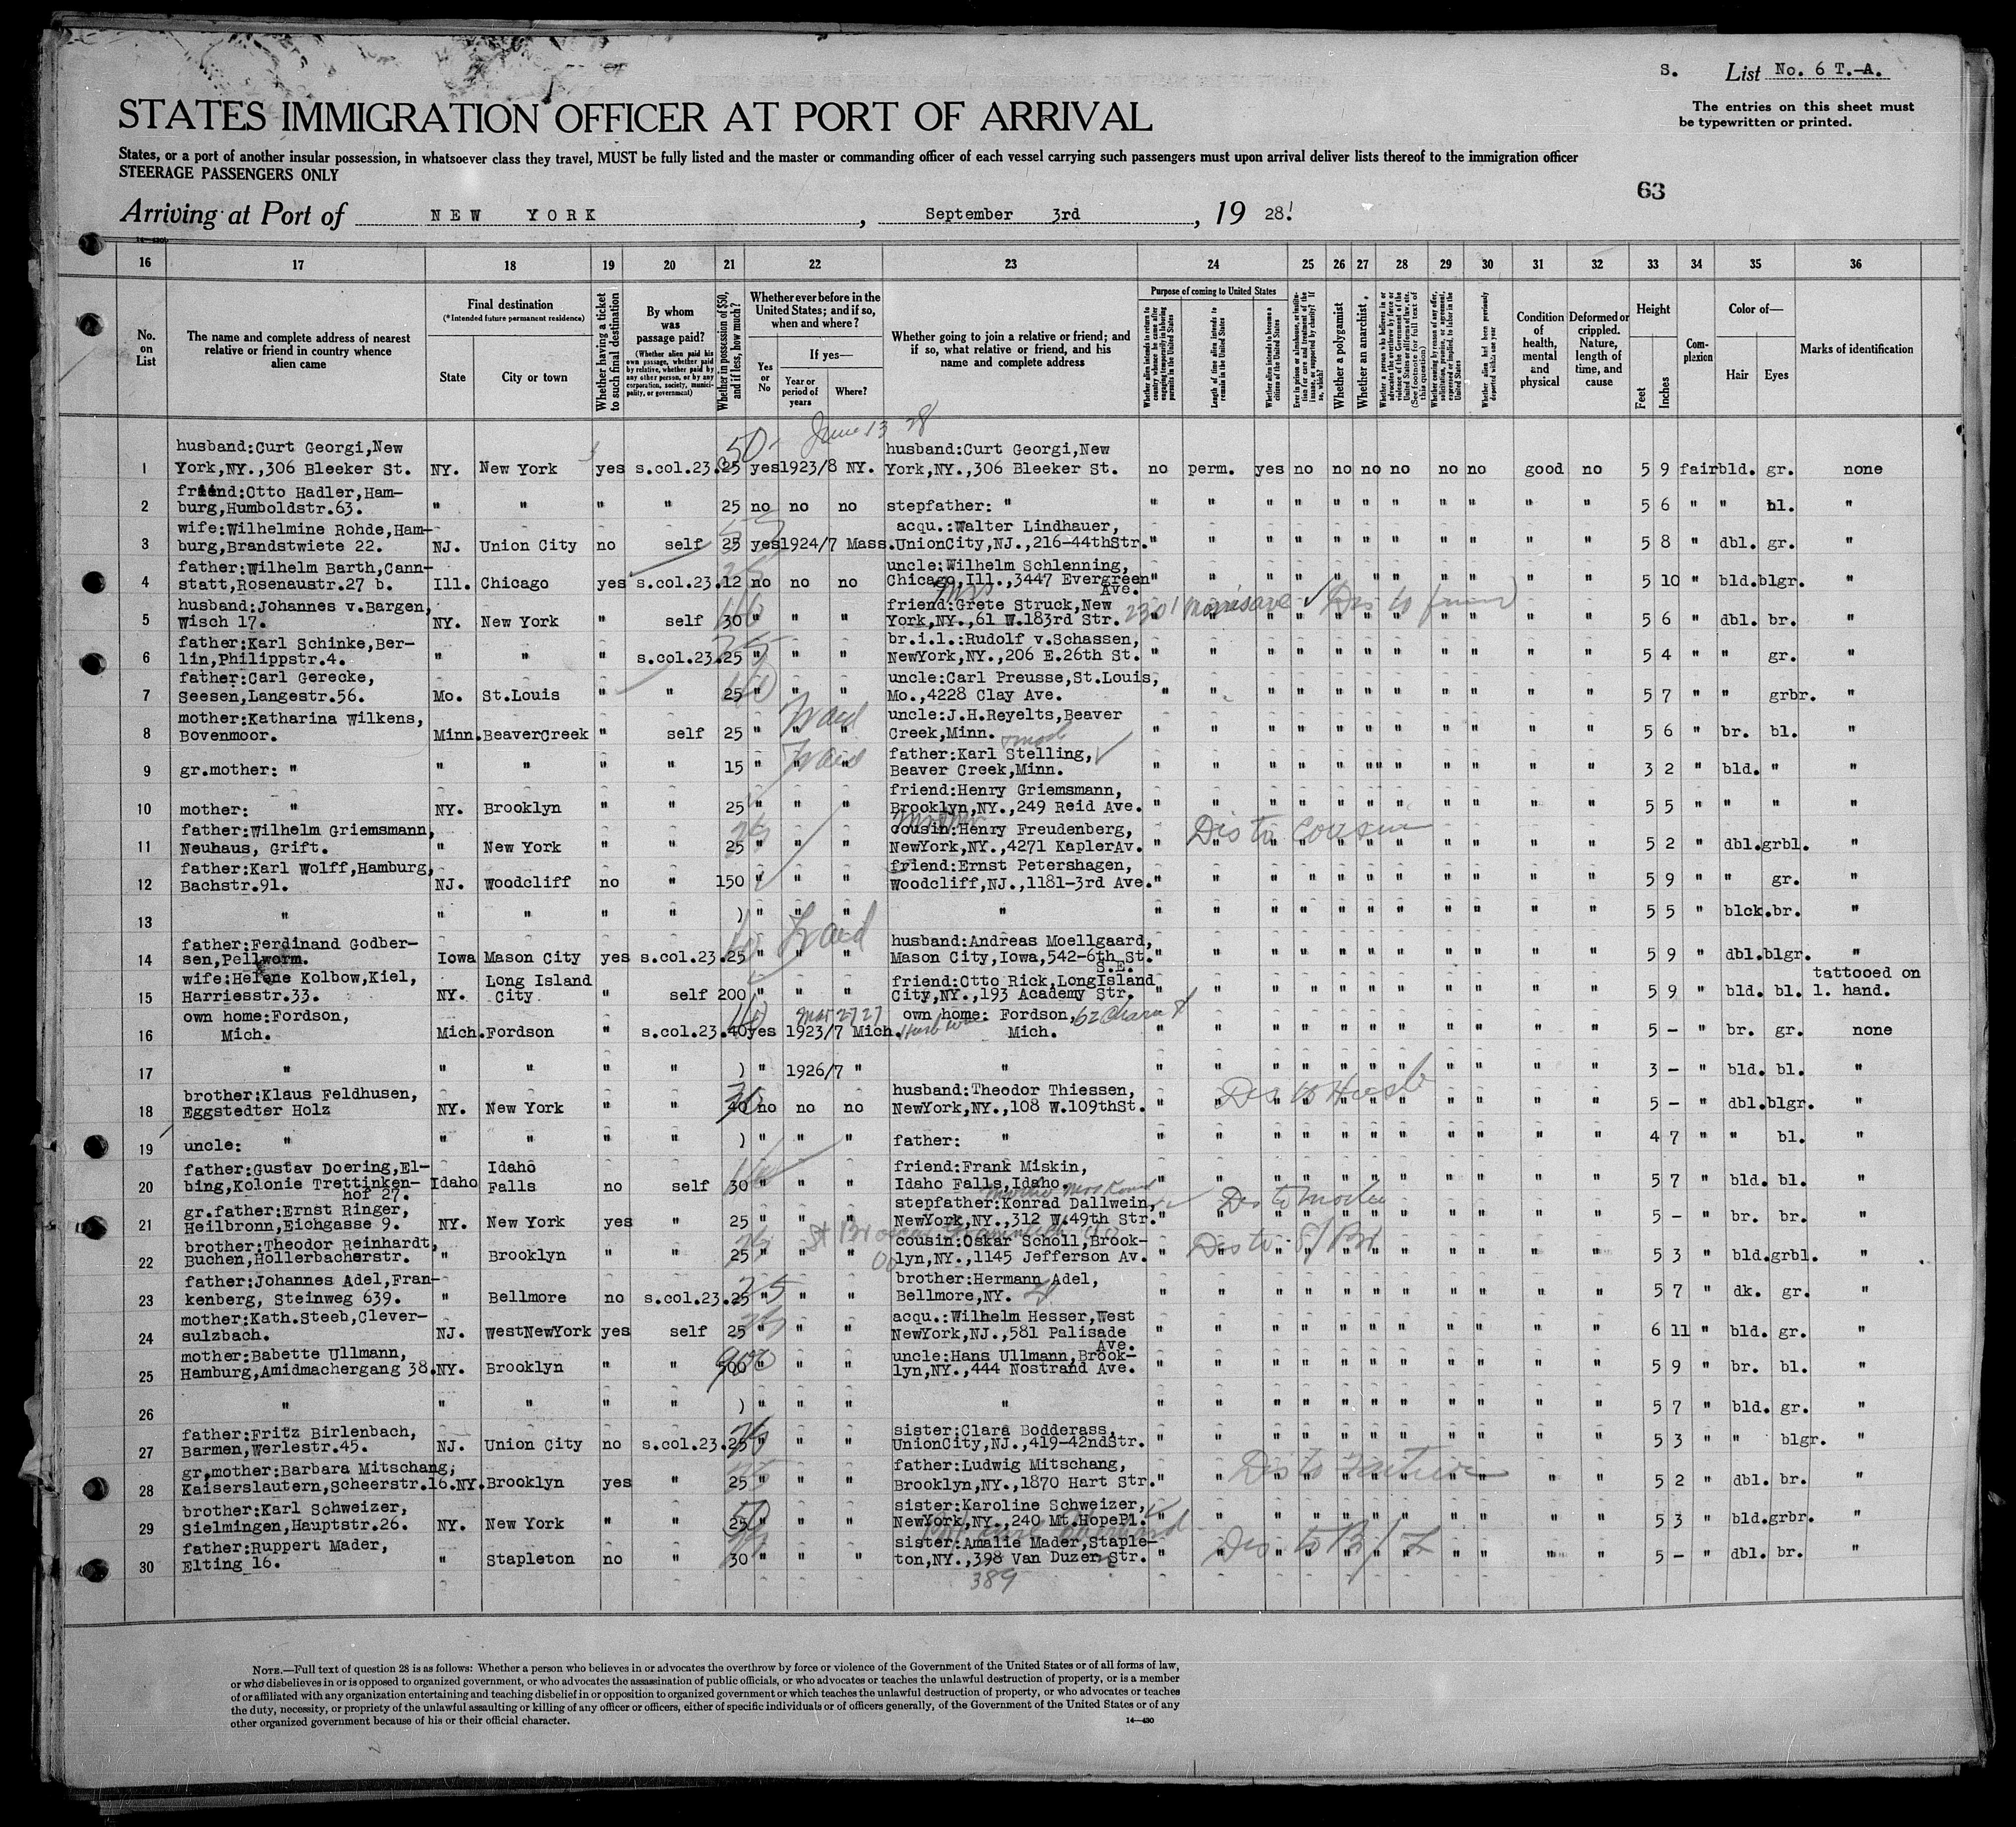 S. List No. 6 T.-A.
STATES IMMIGRATION OFFICER AT PORT OF ARRIVAL
The entries on this sheet must
be typewritten or printed.
States, or a port of another insular possession, in whatsoever class they travel, MUST be fully listed and the master or commanding officer of each vessel carrying such passengers must upon arrival deliver lists thereof to the immigration officer
STEERAGE PASSENGERS ONLY
63
Arriving at Port of NEW YORK, September 3rd, 1928!
16 17 18 19 20 21 22 23 24 25 26 27 28 29 30 31 32 33 34 35 36
No. on List
The name and complete address of nearest relative or friend in country whence alien came
Final destination
(*Intended future permanent residence)
State
City or town
Whether having a ticket to such final destination
By whom was passage paid?
(Whether alien paid his own passage, whether paid by relative, whether paid by any other person, or by any corporation, society, municipality, or government)
Whether in possession of $50, and if less, how much?
Whether ever before in the United States; and if so, when and where?
Yes or No
If yes—
Year or period of years
Where?
Whether going to join a relative or friend; and if so, what relative or friend, and his name and complete address
Purpose of coming to United States
Length of time alien intends to remain in the United States
Whether alien intends to become a citizen of the United States
Whether a polygamist
Whether an anarchist
Condition of health, mental and physical
Deformed or crippled. Nature, length of time, and cause
Height
Feet
Inches
Complexion
Color of—
Hair
Eyes
Marks of identification
June 13 28
50-
husband:Curt Georgi,New husband:Curt Georgi,New
1 York,NY.,306 Bleeker St. NY. New York yes s.col.23. 25 yes 1923/8 NY. York,NY.,306 Bleeker St. no perm. yes no no no no no no good no 5 9 fair bld. gr. none
friend:Otto Hadler,Ham-
2 burg,Humboldtstr.63. " " " " 25 no no no stepfather: " " " " " " " " " " " " 5 6 " " bl. "
wife:Wilhelmine Rohde,Ham- acqu.:Walter Lindhauer,
3 burg,Brandstwiete 22. NJ. Union City no self 25 yes 1924/7 Mass. UnionCity,NJ.,216-44thStr. " " " " " " " " " " " 5 8 " dbl. gr. "
father:Wilhelm Barth,Cann- uncle:Wilhelm Schlenning,
4 statt,Rosenaustr.27 b. Ill. Chicago yes s.col.23. 12 no no no Chicago,Ill.,3447 Evergreen Ave. " " " " " " " " " " " 5 10 " bld. blgr. "
husband:Johannes v.Bargen, Mrs friend:Grete Struck,New
5 Wisch 17. NY. New York " self 30 " " " York,NY.,61 W.183rd Str. 2301 Morris ave Dis to friend " " " " " " " " " " " 5 6 " dbl. br. "
father:Karl Schinke,Ber- br.i.l.:Rudolf v.Schassen,
6 lin,Philippstr.4. " " " s.col.23. 25 " " " NewYork,NY.,206 E.26th St. " " " " " " " " " " " 5 4 " " gr. "
father:Carl Gerecke, uncle:Carl Preusse,St.Louis,
7 Seesen,Langestr.56. Mo. St.Louis " " 25 " " " Mo.,4228 Clay Ave. " " " " " " " " " " " 5 7 " " grbr. "
mother:Katharina Wilkens, uncle:J.H.Reyelts,Beaver
8 Bovenmoor. Minn. BeaverCreek " self 25 " " " Creek,Minn. " " " " " " " " " " " 5 6 " br. bl. "
father:Karl Stelling,
9 gr.mother: " " " " " 15 " " " Beaver Creek,Minn. " " " " " " " " " " " 3 2 " bld. " "
friend:Henry Griemsmann,
10 mother: " NY. Brooklyn " " 25 " " " Brooklyn,NY.,249 Reid Ave. " " " " " " " " " " " 5 5 " " " "
father:Wilhelm Griemsmann, cousin:Henry Freudenberg,
11 Neuhaus, Grift. " New York " " 25 " " " NewYork,NY.,4271 KaplerAv. Dis to cousin " " " " " " " " " " " 5 2 " dbl. grbl. "
father:Karl Wolff,Hamburg, friend:Ernst Petershagen,
12 Bachstr.91. NJ. Woodcliff no " 150 " " " Woodcliff,NJ.,1181-3rd Ave. " " " " " " " " " " " 5 9 " " gr. "
13 " " " " " ) " " " " " " " " " " " " " " " 5 5 " blck. br. "
father:Ferdinand Godber- husband:Andreas Moellgaard,
14 sen,Pellworm. Iowa Mason City yes s.col.23. 25 " " " Mason City,Iowa,542-6th St. S.E. " " " " " " " " " " " 5 9 " dbl. blgr. "
wife:Helene Kolbow,Kiel, Long Island friend:Otto Rick,LongIsland tattooed on
15 Harriesstr.33. NY. City " self 200 " " " City,NY.,193 Academy Str. " " " " " " " " " " " 5 9 " bld. bl. l. hand.
own home:Fordson, Mar 27 27 own home: Fordson,
16 Mich. Mich. Fordson " s.col.23. 40 yes 1923/7 Mich. Mich. " " " " " " " " " " " 5 - " br. gr. none
17 " " " " " ) " 1926/7 " " " " " " " " " " " " " 3 - " bld. bl. "
brother:Klaus Feldhusen, husband:Theodor Thiessen,
18 Eggstedter Holz NY. New York " " 40 no no no NewYork,NY.,108 W.109thSt. Dis to Husb " " " " " " " " " " " 5 - " dbl. blgr. "
19 uncle: " " " " " ) " " " father: " " " " " " " " " " " " 4 7 " " bl. "
father:Gustav Doering,El- Idaho friend:Frank Miskin,
20 bing,Kolonie Trettinken- hof 27. Idaho Falls no self 30 " " " Idaho Falls,Idaho. " " " " " " " " " " " 5 7 " bld. bl. "
gr.father:Ernst Ringer, stepfather:Konrad Dallwein,
21 Heilbronn,Eichgasse 9. NY. New York yes " 25 " " " NewYork,NY.,312 W.49th Str. Dis to mother " " " " " " " " " " " 5 - " br. br. "
brother:Theodor Reinhardt, cousin:Oskar Scholl,Brook-
22 Buchen,Hollerbacherstr. " Brooklyn " " 25 " " " lyn,NY.,1145 Jefferson Av. Dis to S/Br " " " " " " " " " " " 5 3 " bld. grbl. "
father:Johannes Adel,Fran- brother:Hermann Adel,
23 kenberg, Steinweg 639. " Bellmore no s.col.23. 25 " " " Bellmore,NY. " " " " " " " " " " " 5 7 " dk. gr. "
mother:Kath.Steeb,Clever- acqu.:Wilhelm Hesser,West
24 sulzbach. NJ. WestNewYork yes self 25 " " " NewYork,NJ.,581 Palisade Ave. " " " " " " " " " " " 6 11 " bld. gr. "
mother:Babette Ullmann, uncle:Hans Ullmann,Brook-
25 Hamburg,Amidmachergang 38. NY. Brooklyn " " 500 " " " lyn,NY.,444 Nostrand Ave. " " " " " " " " " " " 5 9 " br. bl. "
26 " " " " " ) " " " " " " " " " " " " " " " 5 7 " bld. gr. "
father:Fritz Birlenbach, sister:Clara Bodderass,
27 Barmen,Werlestr.45. NJ. Union City no s.col.23. 25 " " " UnionCity,NJ.,419-42ndStr. " " " " " " " " " " " 5 3 " " blgr. "
gr.mother:Barbara Mitschang, father:Ludwig Mitschang,
28 Kaiserslautern,Scheerstr.16. NY. Brooklyn yes " 25 " " " Brooklyn,NY.,1870 Hart Str. Dis to Father " " " " " " " " " " " 5 2 " dbl. br. "
brother:Karl Schweizer, sister:Karoline Schweizer,
29 Sielmingen,Hauptstr.26. NY. New York " " 25 " " " NewYork,NY.,240 Mt.HopePl. " " " " " " " " " " " 5 3 " bld. grbr. "
father:Ruppert Mader, sister:Amalie Mader,Staple-
30 Elting 16. " Stapleton no " 30 " " " ton,NY.,398 Van Duzer Str. Dis to B/L " " " " " " " " " " " 5 - " dbl. br. "
389
NOTE.—Full text of question 28 is as follows: Whether a person who believes in or advocates the overthrow by force or violence of the Government of the United States or of all forms of law,
or who disbelieves in or is opposed to organized government, or who advocates the assassination of public officials, or who advocates or teaches the unlawful destruction of property, or is a member
of or affiliated with any organization entertaining and teaching disbelief in or opposition to organized government or which teaches the unlawful destruction of property, or who advocates or teaches
the duty, necessity, or propriety of the unlawful assaulting or killing of any officer or officers, either of specific individuals or of officers generally, of the Government of the United States or of any
other organized government because of his or their official character.
14—430